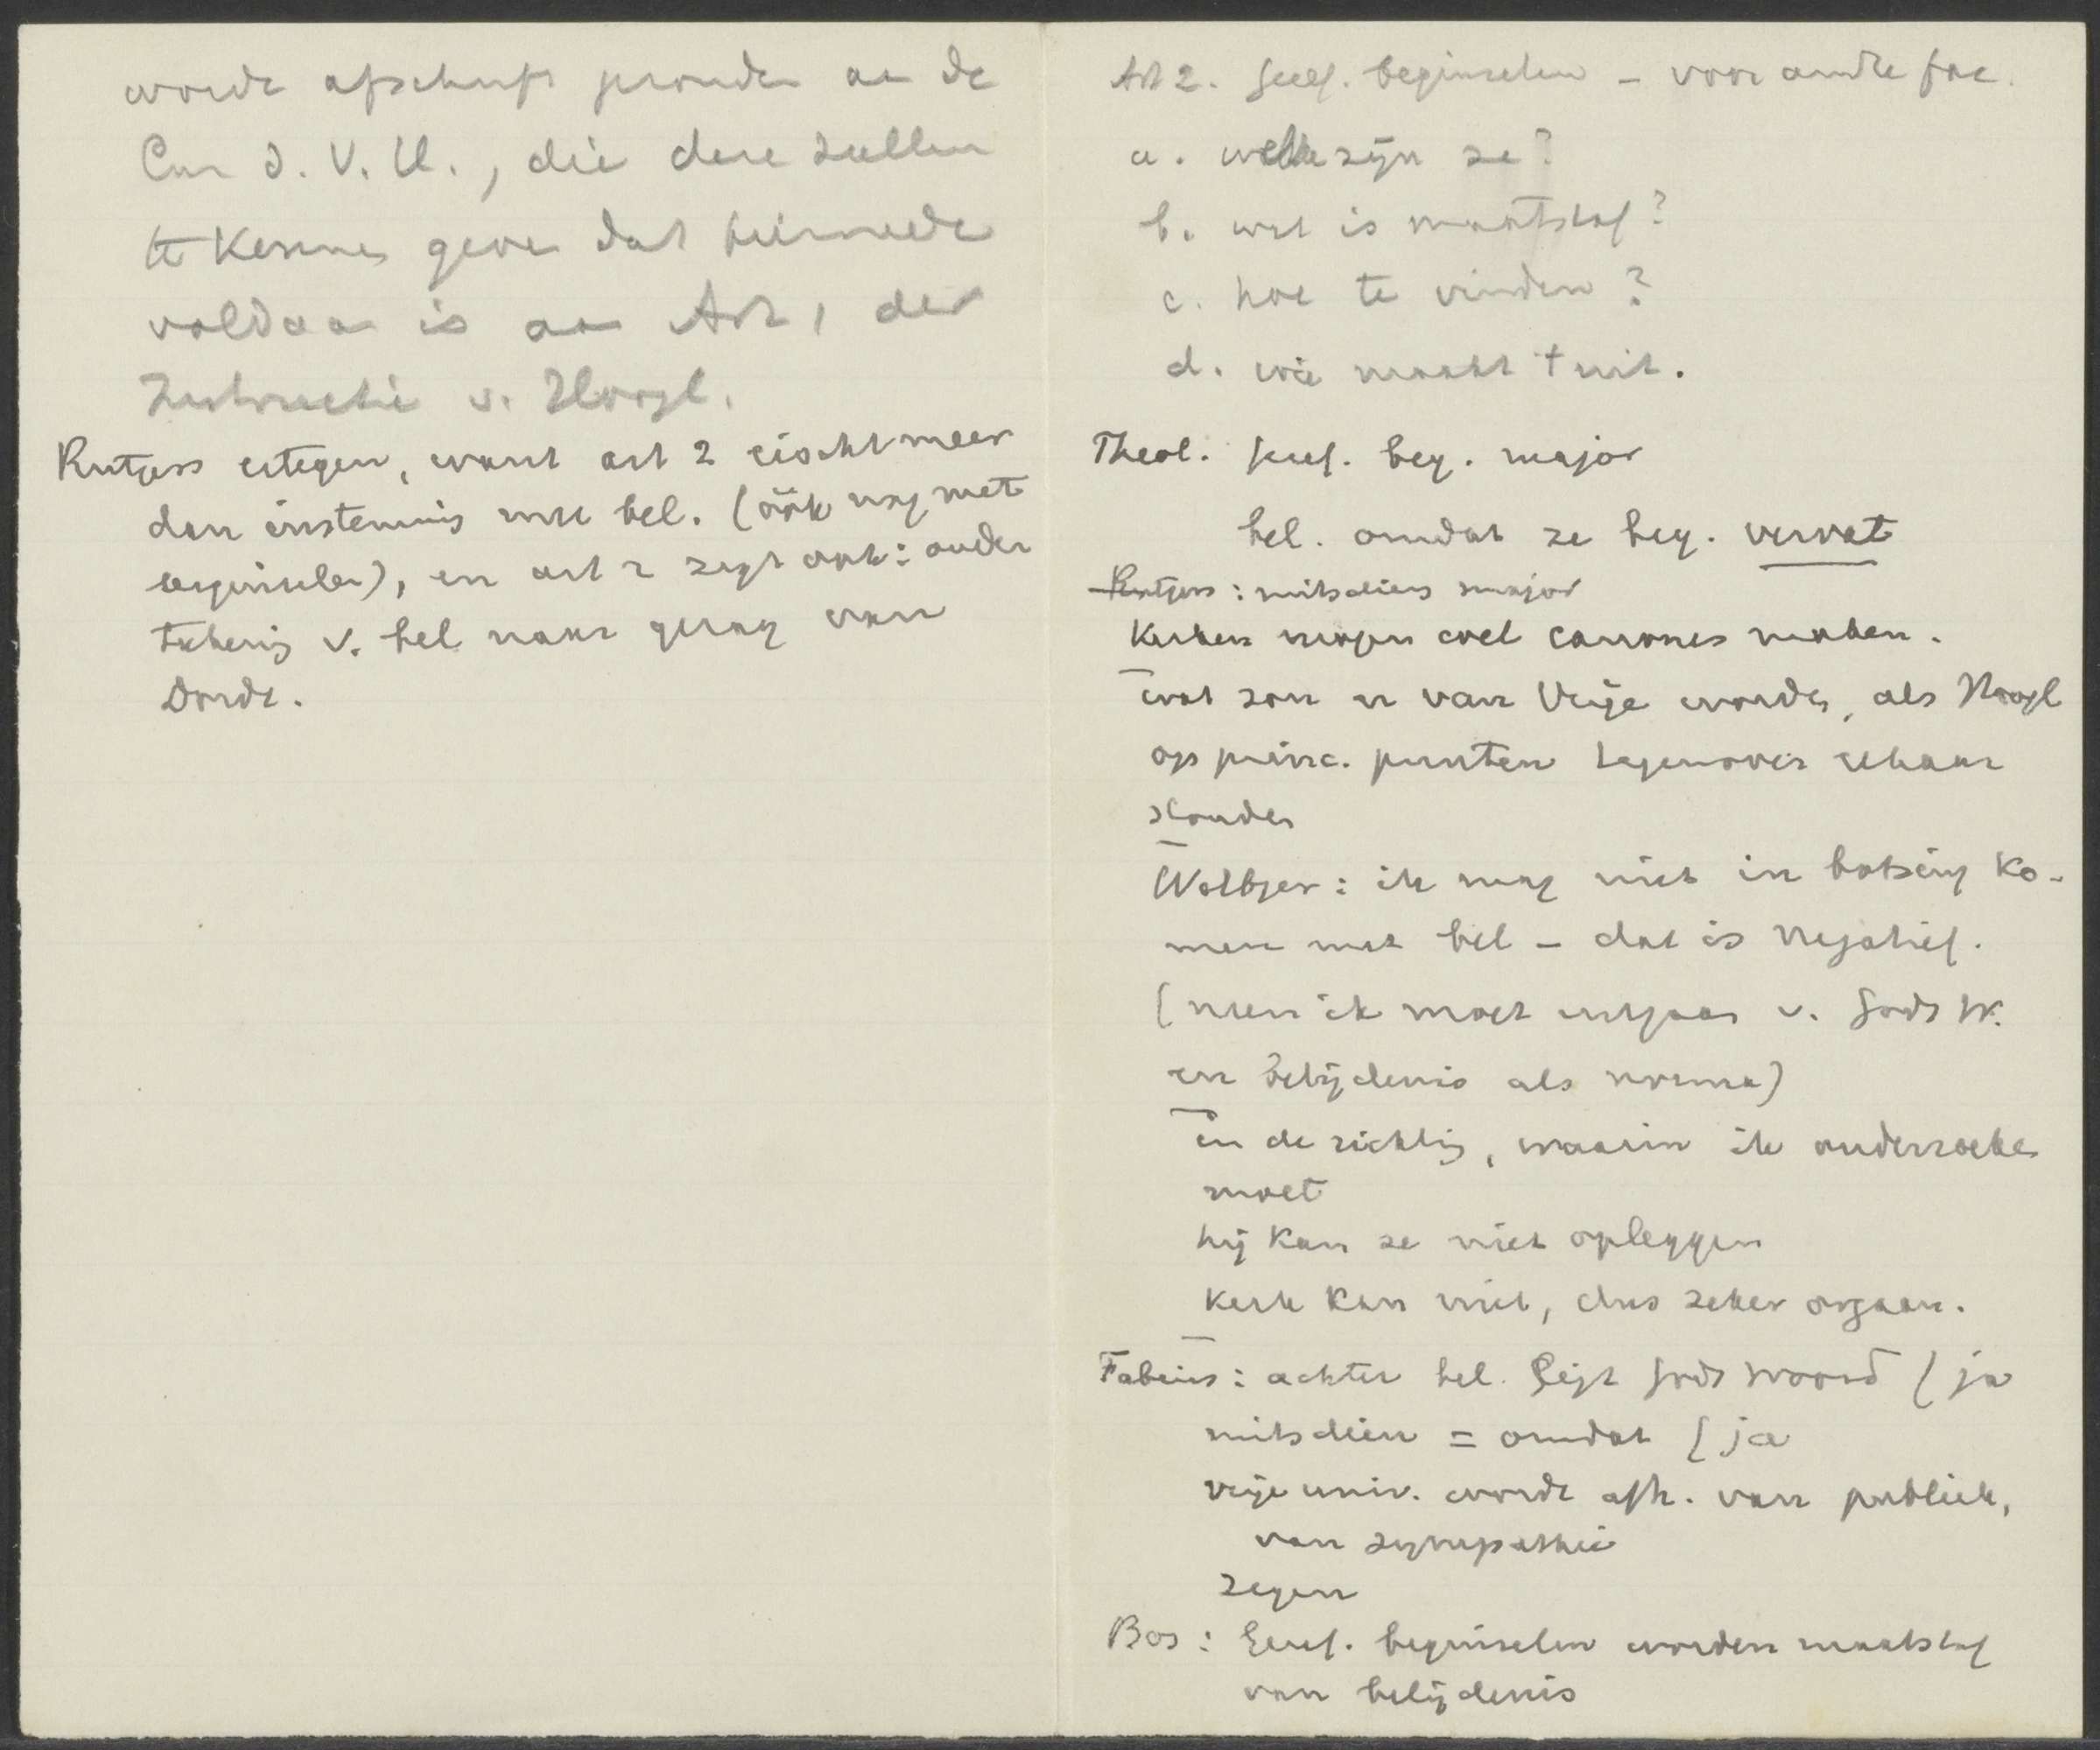 worde afschrift gezonden aan de
Cur d. V. U., die deze zullen
te kennen geven dat hiermede
voldaan is aan Art 1 der
Instructie v. Hoogl.
Rutgers ertegen, want art 2 eischt meer
dan instemming met bel. (óók nog met
beginselen), en art 2 zegt ook: onder
teekening v. bel naar gezag van
Dordt.
Art 2. Geref. beginselen – voor andere fac.
a. welke zijn ze?
b. wat is maatstaf?
c. hoe te vinden?
d. wie maakt 't uit.
Theol. Geref. beg. major
bel. omdat ze beg. vervat
Rutgers: mitsdien major
Kerken mogen wel canones maken.
wat zou er van Vrije worden, als Hoogl
op princ. punten tegenover elkaar
stonden
Woltjer: ik mag niet in botsing ko-
men met bel – dat is negatief.
(neen ik moet uitgaan v. Gods W.
en belijdenis als norma)
in de richting, waarin ik onderzoeken
moet
hij kan ze niet opleggen
kerk kan niet, dus zeker orgaan.
Fabius: achter bel. ligt Gods woord (ja
mitsdien = omdat (ja
vrije univ. wordt afh. van publiek,
van sympathie
zegen
Bos: Geref. beginselen worden maatstaf
van belijdenis